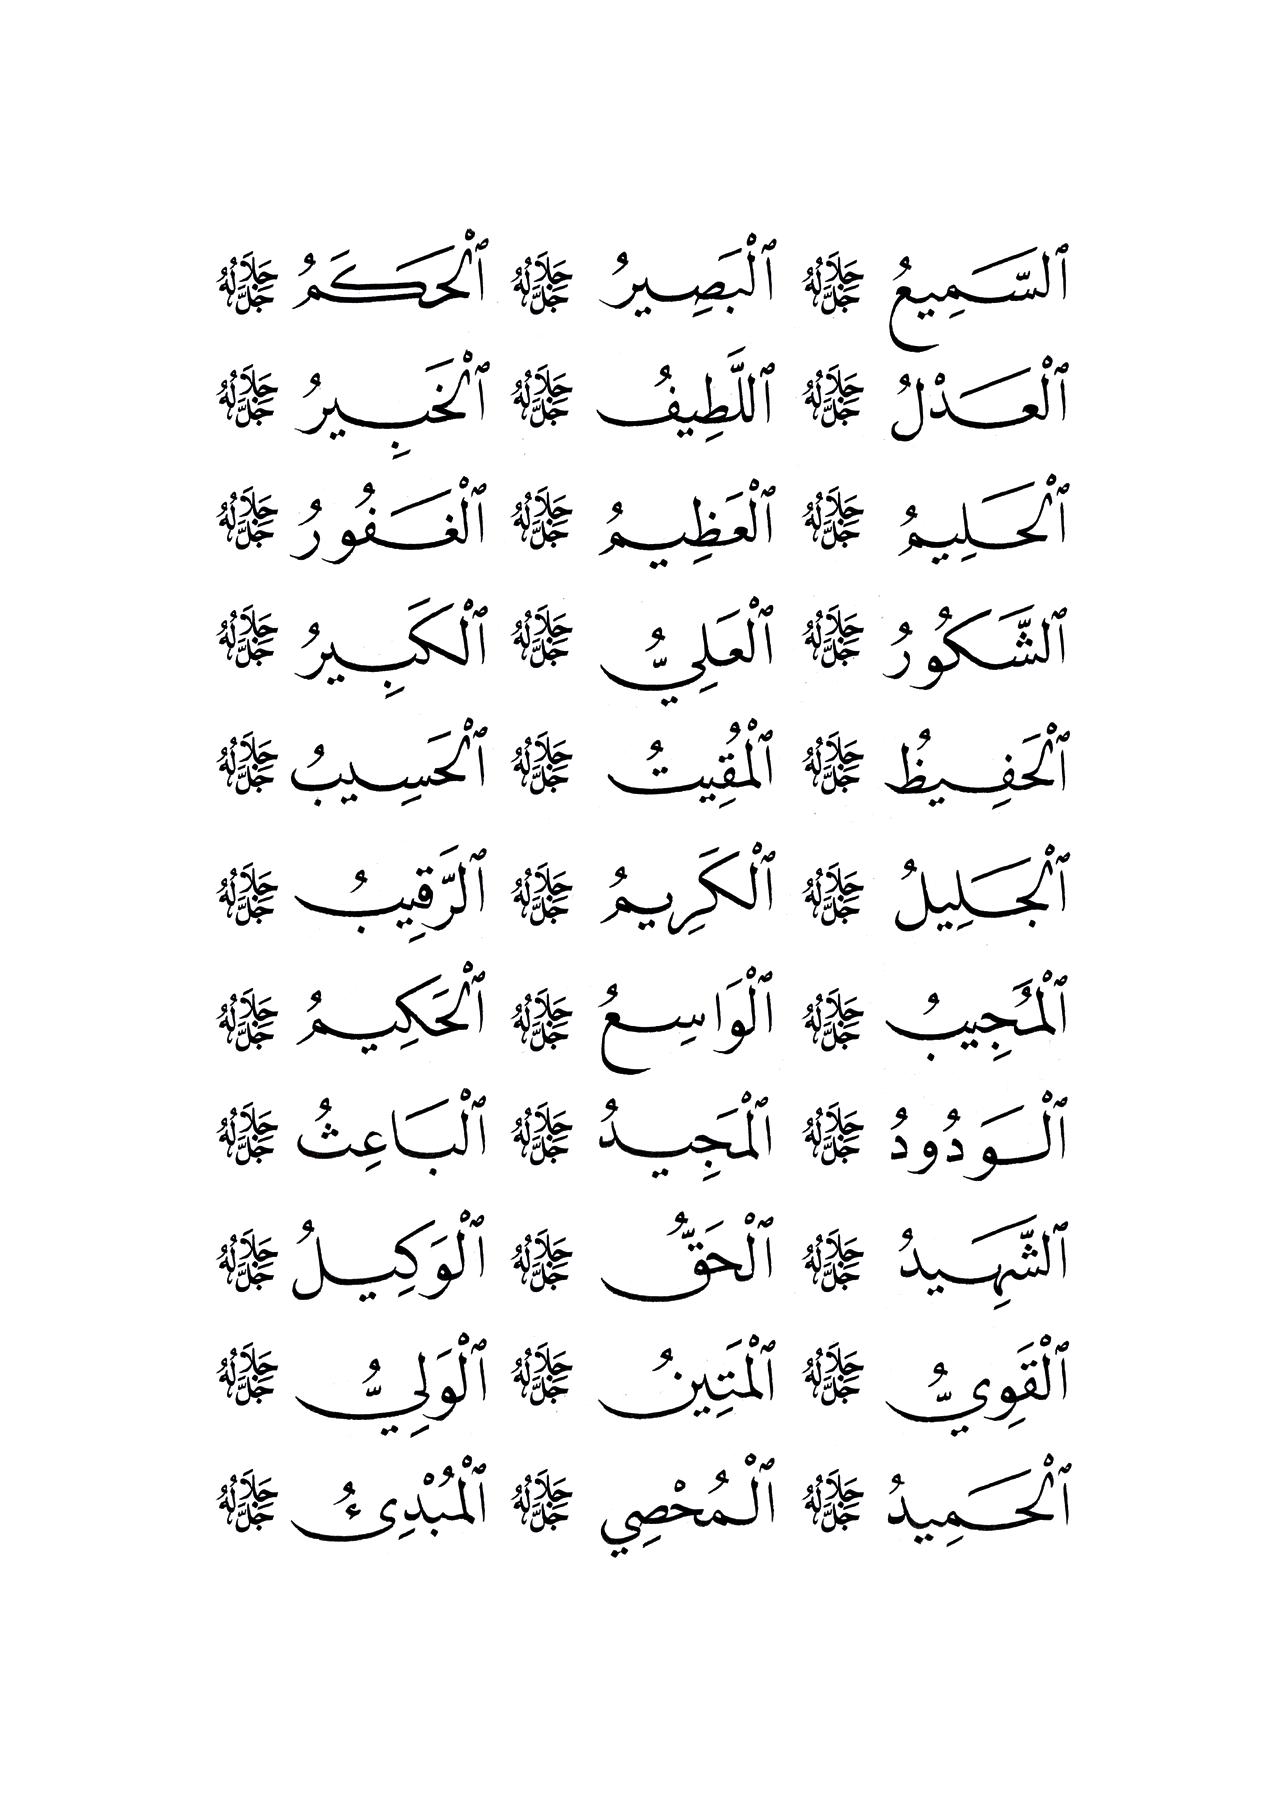 ٱلسَّمِيعُ جَلَّ جَلَالُهُ ٱلْبَصِيرُ جَلَّ جَلَالُهُ ٱلْحَكَمُ جَلَّ جَلَالُهُ
ٱلْعَدْلُ جَلَّ جَلَالُهُ ٱللَّطِيفُ جَلَّ جَلَالُهُ ٱلْخَبِيرُ جَلَّ جَلَالُهُ
ٱلْحَلِيمُ جَلَّ جَلَالُهُ ٱلْعَظِيمُ جَلَّ جَلَالُهُ ٱلْغَفُورُ جَلَّ جَلَالُهُ
ٱلشَّكُورُ جَلَّ جَلَالُهُ ٱلْعَلِيُّ جَلَّ جَلَالُهُ ٱلْكَبِيرُ جَلَّ جَلَالُهُ
ٱلْحَفِيظُ جَلَّ جَلَالُهُ ٱلْمُقِيتُ جَلَّ جَلَالُهُ ٱلْحَسِيبُ جَلَّ جَلَالُهُ
ٱلْجَلِيلُ جَلَّ جَلَالُهُ ٱلْكَرِيمُ جَلَّ جَلَالُهُ ٱلرَّقِيبُ جَلَّ جَلَالُهُ
ٱلْمُجِيبُ جَلَّ جَلَالُهُ ٱلْوَاسِعُ جَلَّ جَلَالُهُ ٱلْحَكِيمُ جَلَّ جَلَالُهُ
ٱلْوَدُودُ جَلَّ جَلَالُهُ ٱلْمَجِيدُ جَلَّ جَلَالُهُ ٱلْبَاعِثُ جَلَّ جَلَالُهُ
ٱلشَّهِيدُ جَلَّ جَلَالُهُ ٱلْحَقُّ جَلَّ جَلَالُهُ ٱلْوَكِيلُ جَلَّ جَلَالُهُ
ٱلْقَوِيُّ جَلَّ جَلَالُهُ ٱلْمَتِينُ جَلَّ جَلَالُهُ ٱلْوَلِيُّ جَلَّ جَلَالُهُ
ٱلْحَمِيدُ جَلَّ جَلَالُهُ ٱلْمُحْصِي جَلَّ جَلَالُهُ ٱلْمُبْدِئُ جَلَّ جَلَالُهُ